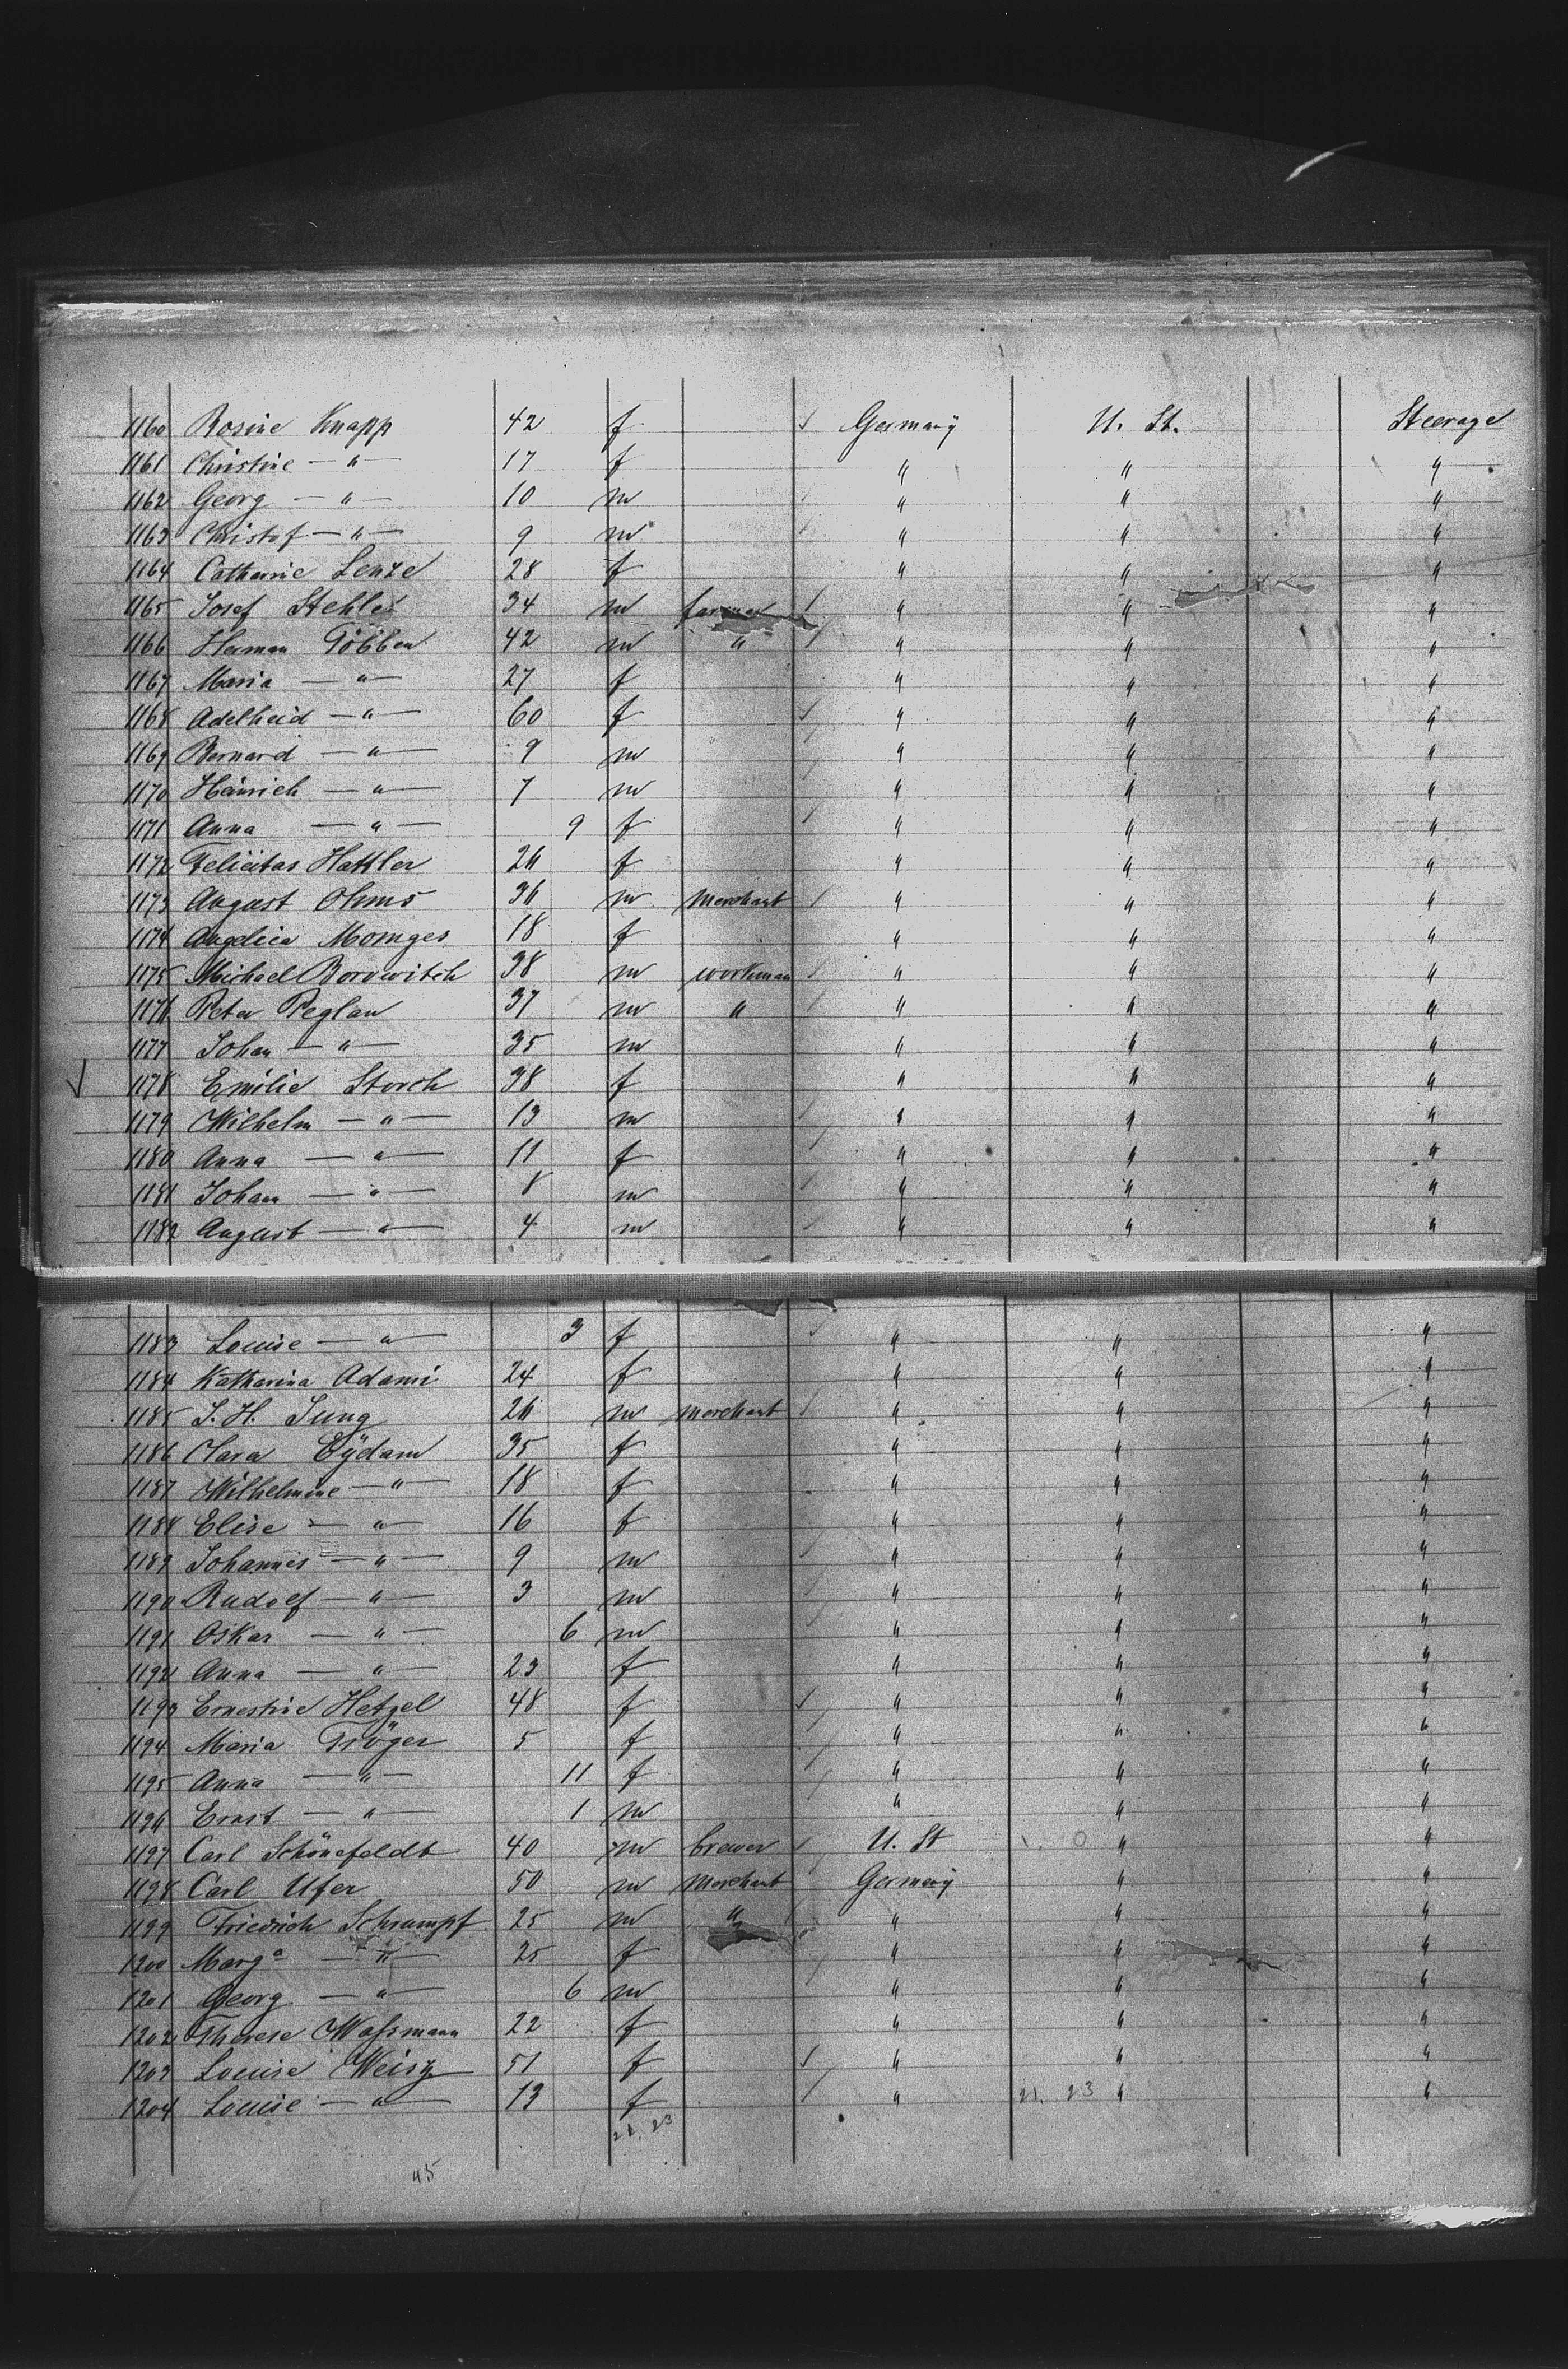 1160 Rosine Knapp 42 f Germany U. St. Steerage
1161 Christine — " — 17 f " " "
1162 Georg — " — 10 m " " "
1163 Christof — " — 9 m " " "
1164 Catharine Lenze 28 f " " "
1165 Josef Stehle 34 m farmer " " "
1166 Herman Göbben 42 m " " " "
1167 Maria — " — 27 f " " "
1168 Adelheid — " — 60 f " " "
1169 Bernard — " — 9 m " " "
1170 Heinrich — " — 7 m " " "
1171 Anna — " — 9 f " " "
1172 Felicitas Hattler 26 f " " "
1173 August Ohms 36 m Merchant " " "
1174 Angelica Momges 18 f " " "
1175 Michael Borowitch 38 m workman " " "
1176 Peter Reglan 37 m " " " "
1177 Johan — " — 35 m " " "
1178 Emilie Storch 38 f " " "
1179 Wilhelm — " — 13 m " " "
1180 Anna — " — 11 f " " "
1181 Johan — " — 8 m " " "
1182 August — " — 4 m " " "
1183 Louise — " — 3 f " " "
1184 Katharina Adami 24 f " " "
1185 J. H. Jung 26 m merchant " " "
1186 Clara Eÿdam 35 f " " "
1187 Wilhelmine — " — 18 f " " "
1188 Elise — " — 16 f " " "
1189 Johannes — " — 9 m " " "
1190 Rudolf — " — 3 m " " "
1191 Oskar — " — 6 m " " "
1192 Anna — " — 23 f " " "
1193 Ernestine Hetzel 48 f " " "
1194 Maria Tröger 5 f " " "
1195 Anna — " — 11 f " " "
1196 Ernst — " — 1 m " " "
1197 Carl Schönefeldt 40 m brewer U. St " "
1198 Carl Ufer 50 m Merchant Germany " "
1199 Friedrich Schrumpf 25 m " " " "
1200 Marg<sup>a</sup> — " — 25 f " " "
1201 Georg — " — 6 m " " "
1202 Therese Waſsmann 22 f " " "
1203 Louise Weisz 51 f " " "
1204 Louise — " — 13 f " 21. 23 " "
22. 23
45